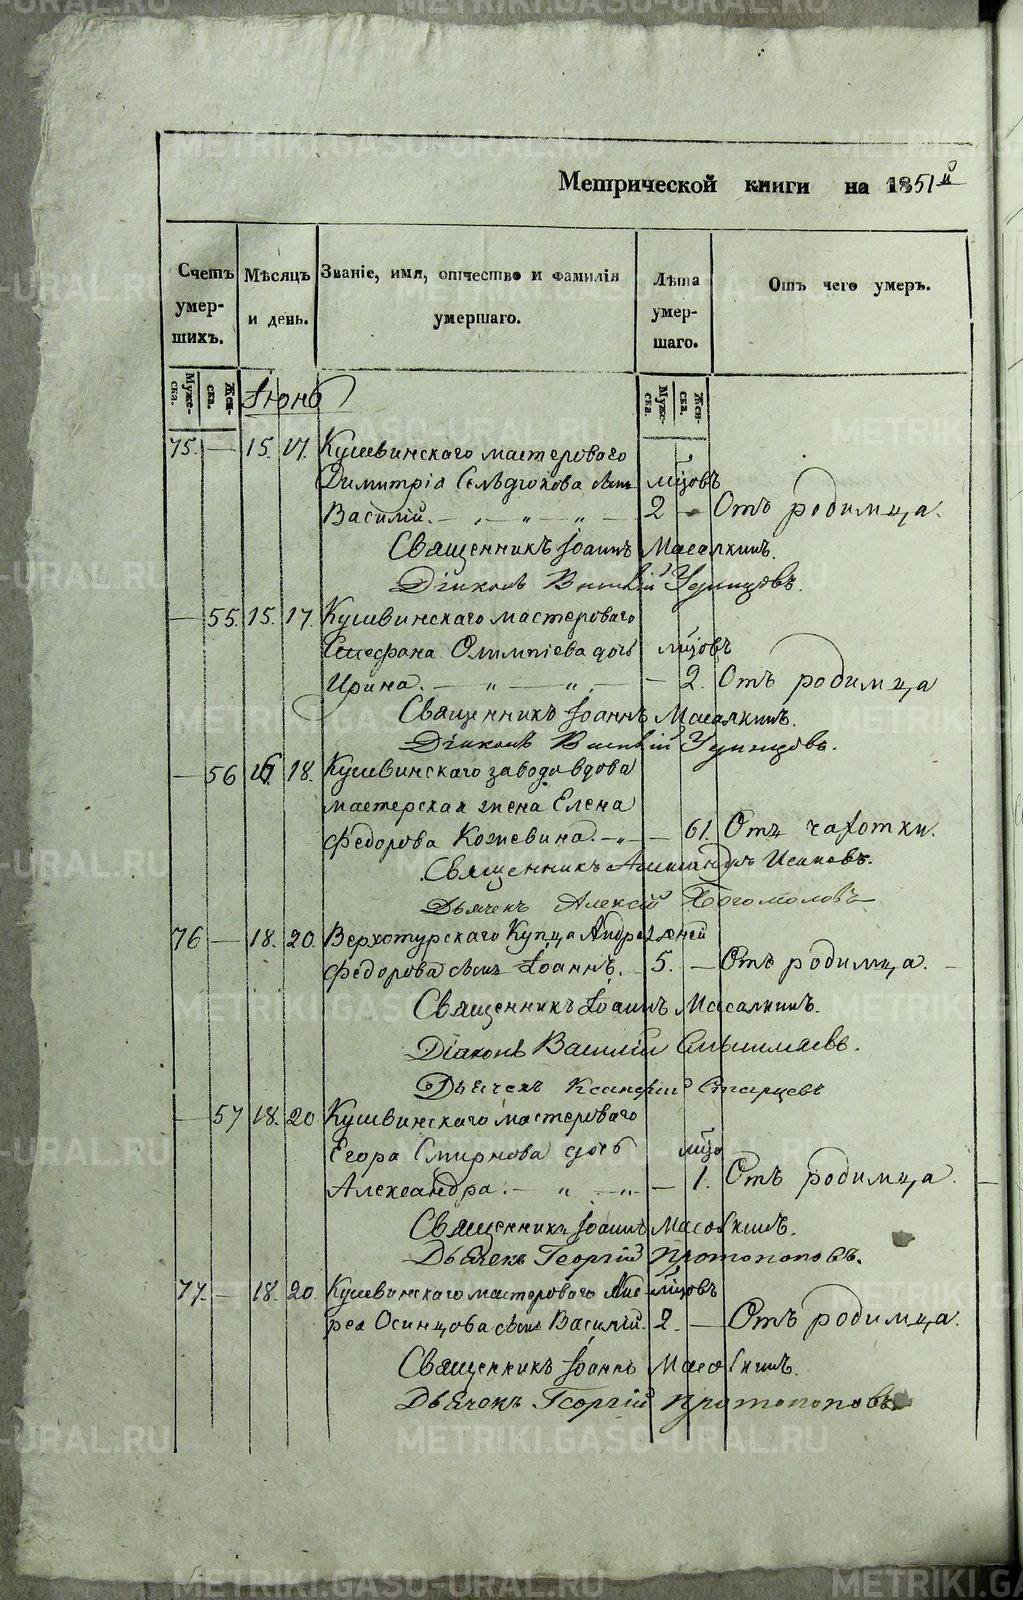 Метрической книги на 1851й
Счетъ умер-шихъ.
Мѣсяцъ и день.
Званіе, имя, отчество и фамилія умершаго.
Лѣта умер-шаго.
Отъ чего умеръ.
Муже-ска. Жен-ска.
Іюнь
Муже-ска. Жен-ска.
75. — 15. 17. Кушвинскаго мастероваго
Димитрія Селѣдюкова сынъ мѣсяцовъ
Василій. — „ — „ — „ — 2 — Отъ родимца.
Священникъ Іоаннъ Масалкинъ.
Діаконъ
— 55. 15. 17. Кушвинскаго мастероваго
Стефана Олимпіева дочь мѣсяцовъ
Ирина. — „ — „ — — 2. Отъ родимца
Священникъ Іоаннъ Масалкинъ.
Діаконъ
— 56 16. 18. Кушвинскаго завода вдова
мастерская жена Елена
Федорова Кожевина. — „ — — 61. Отъ чахотки.
Священникъ Александръ
Дьячекъ Алексій Богомоловъ
76 — 18. 20. Верхотурскаго Купца Андрея дней
Федорова сынъ Іоаннъ. — 5. — Отъ родимца. —
Священникъ Іоаннъ Масалкинъ.
Діаконъ Василій
Дьячекъ Ксенофонтъ Старцевъ
— 57 18. 20 Кушвинскаго мастероваго
Егора Смирнова дочь мѣсяцъ
Александра. — „ — „ — 1. Отъ родимца.
Священникъ Іоаннъ Масалкинъ.
Дьячекъ Георгій Протопоповъ.
77. — 18. 20. Кушвинскаго мастероваго Анд- мѣсяцовъ
рея Осинцова сынъ Василій. 2. — Отъ родимца.
Священникъ Іоаннъ Масалкинъ.
Дьячокъ Георгій Протопоповъ.
METRIKI.GASO-URAL.RU